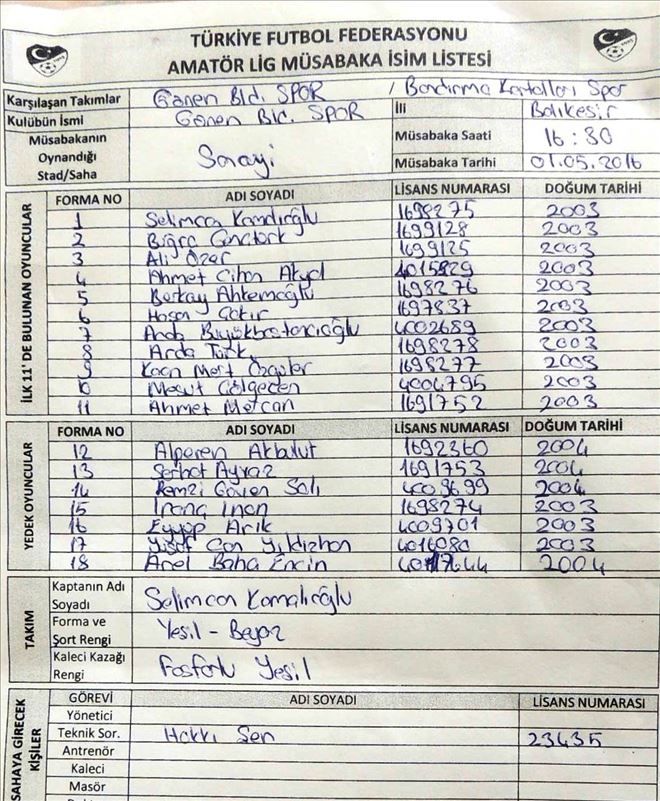 TÜRKİYE FUTBOL FEDERASYONU
AMATÖR LİG MÜSABAKA İSİM LİSTESİ
Karşılaşan Takımlar Gönen Bld. SPOR / Bandırma Kartalları Spor
Kulübün İsmi Gönen Bld. SPOR İli Balıkesir
Müsabakanın Oynandığı Stad/Saha Sarayi Müsabaka Saati 16:30
Müsabaka Tarihi 01.05.2016
İLK 11' DE BULUNAN OYUNCULAR
FORMA NO ADI SOYADI LİSANS NUMARASI DOĞUM TARİHİ
1 Selimcan Kamalıoğlu 1698275 2003
2 Buğra Gençtürk 1699128 2003
3 Ali Özer 1699125 2003
4 Ahmet Cihan Akyol 4015829 2003
5 Berkay Ahkemoğlu 1698276 2003
6 Hasan Çakır 1697837 2003
7 Arda 4002689 2003
8 Arda Türk 1698278 2003
9 Kaan Mert 1698277 2003
10 Mesut Gölgeçen 4004795 2003
11 Ahmet Mercan 1691752 2003
YEDEK OYUNCULAR
FORMA NO ADI SOYADI LİSANS NUMARASI DOĞUM TARİHİ
12 Alperen Akbulut 1692360 2004
13 Serhat Ayvaz 1691753 2004
14 Remzi Güven Salı 4009699 2004
15 İnanç İnan 1698274 2003
16 Eyyüp Arık 4009701 2003
17 Yusuf Can Yıldızhan 4016080 2003
18 Anel Baha Encin 4017644 2004
TAKIM
Kaptanın Adı Soyadı Selimcan Kamalıoğlu
Forma ve Şort Rengi Yeşil - Beyaz
Kaleci Kazağı Rengi Fosforlu Yeşil
SAHAYA GİRECEK KİŞİLER
GÖREVİ ADI SOYADI LİSANS NUMARASI
Yönetici
Teknik Sor. Hakkı Şen 23435
Antrenör
Kaleci
Masör